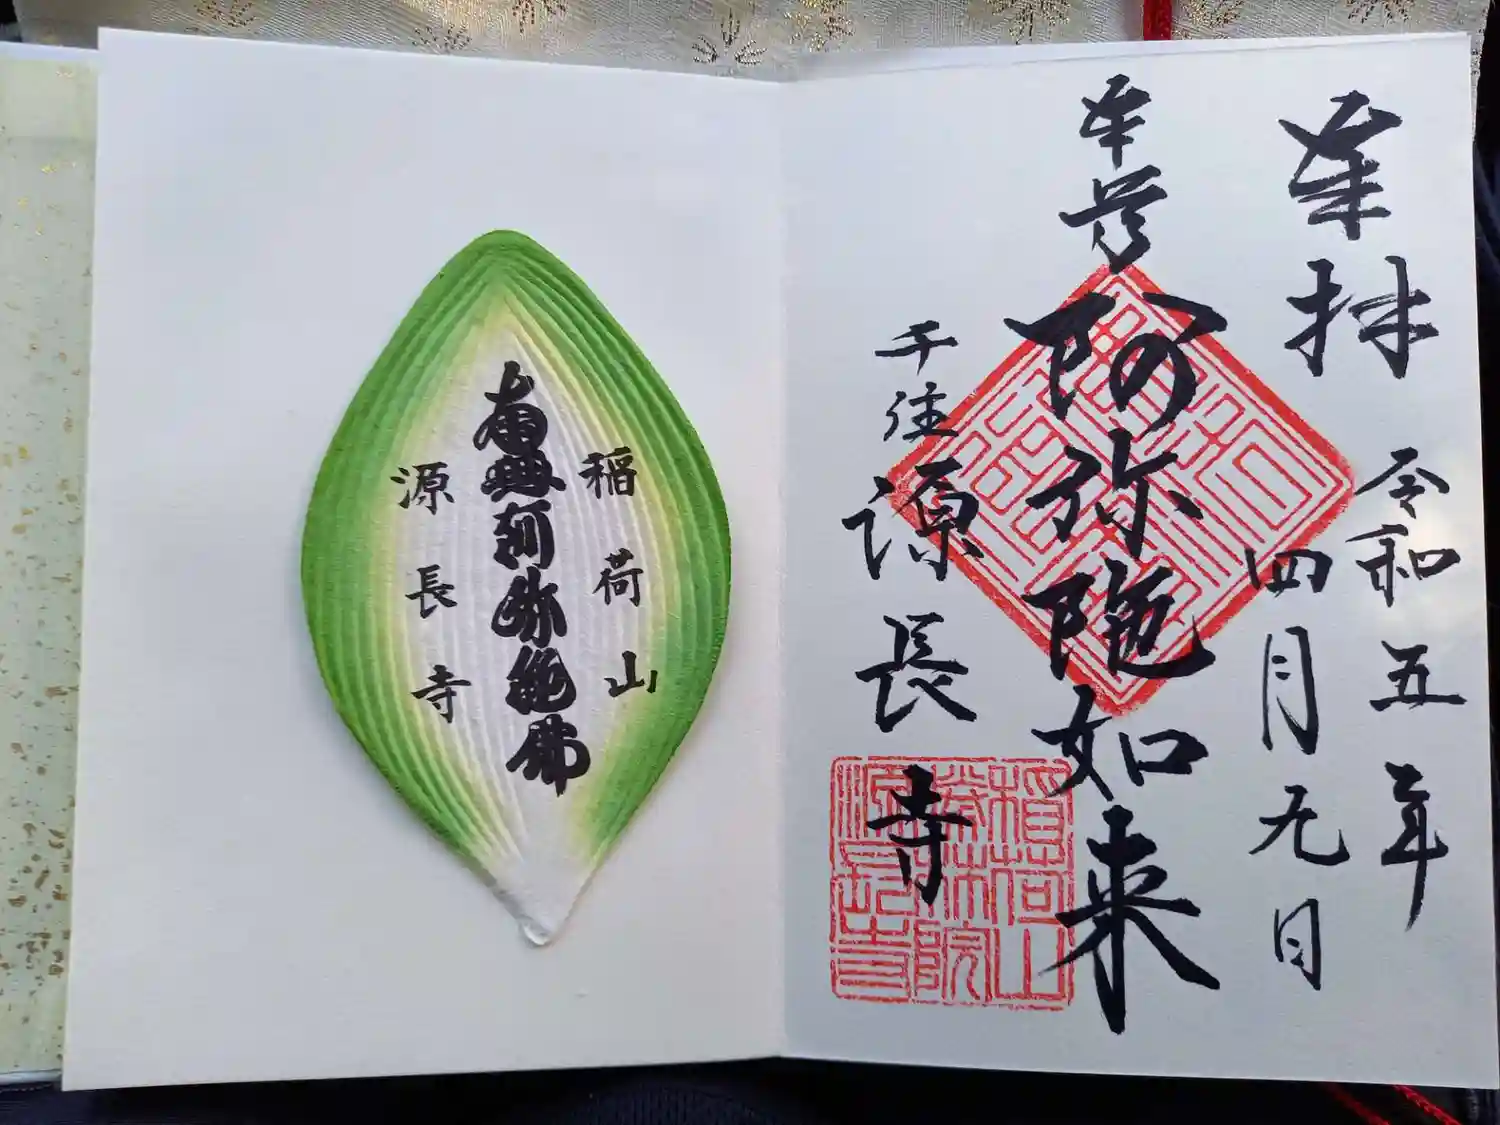 奉拝
令和五年
四月九日
本尊
阿弥陀如来
千住
源長寺
稲荷山
勝林院
源長寺
稲荷山
南無阿弥陀佛
源長寺